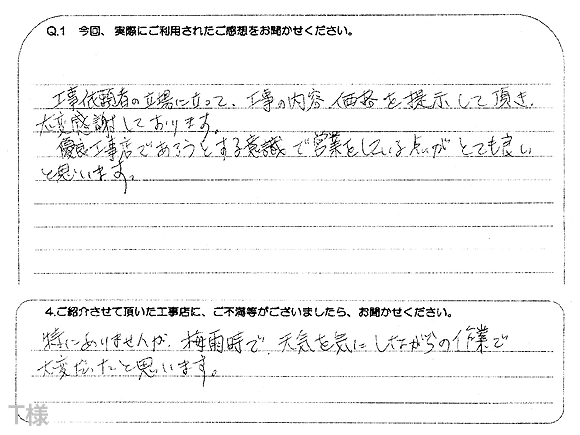 Q.1 今回、実際にご利用されたご感想をお聞かせください。
工事依頼者の立場に立って、工事の内容、価格を提示して頂き、
大変感謝しております。
優良工事店であろうとする意識で営業をしている点がとても良い
と思います。
4.ご紹介させて頂いた工事店に、ご不満等がございましたら、お聞かせください。
特にありませんが、梅雨時で、天気を気にしながらの作業で
大変だったと思います。
T様